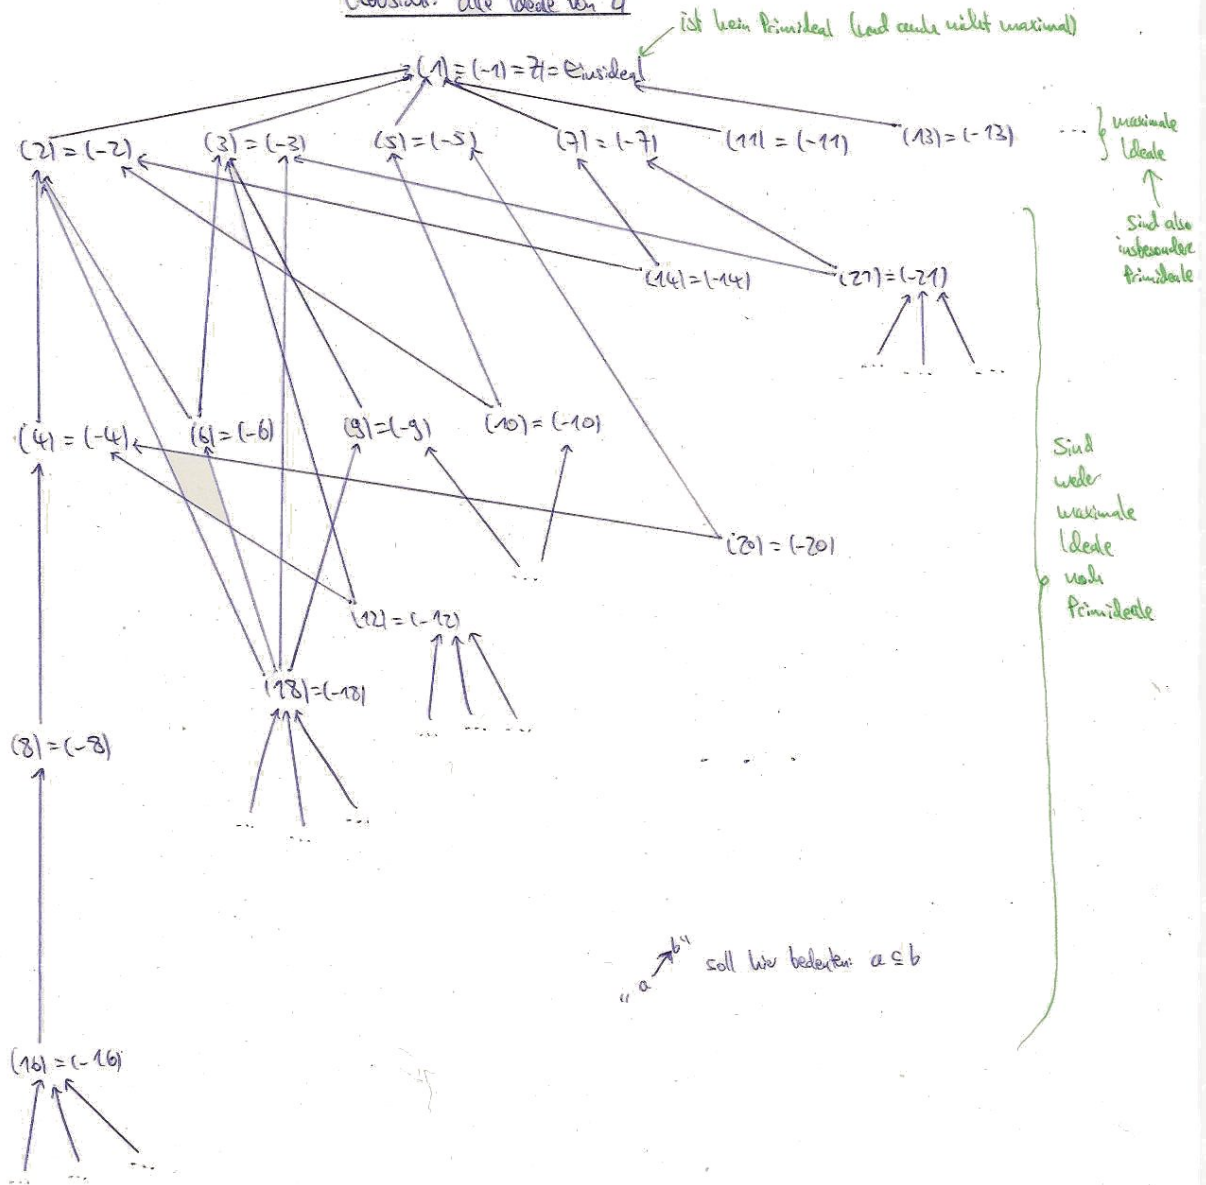 Übersicht: alle Ideale von ℤ
ist kein Primideal (und auch nicht maximal)
(1) = (-1) = ℤ = Einsideal
(2) = (-2) (3) = (-3) (5) = (-5) (7) = (-7) (11) = (-11) (13) = (-13) ...
maximale
Ideale
sind also
insbesondere
Primideale
(14) = (-14) (21) = (-21)
... ... ...
(4) = (-4) (6) = (-6) (9) = (-9) (10) = (-10)
Sind
weder
maximale
Ideale
noch
Primideale
(20) = (-20)
...
(12) = (-12)
(18) = (-18)
... ... ...
(8) = (-8)
. . .
... ... ...
"a b" soll hier bedeuten: a ⊆ b
(16) = (-16)
... ... ...